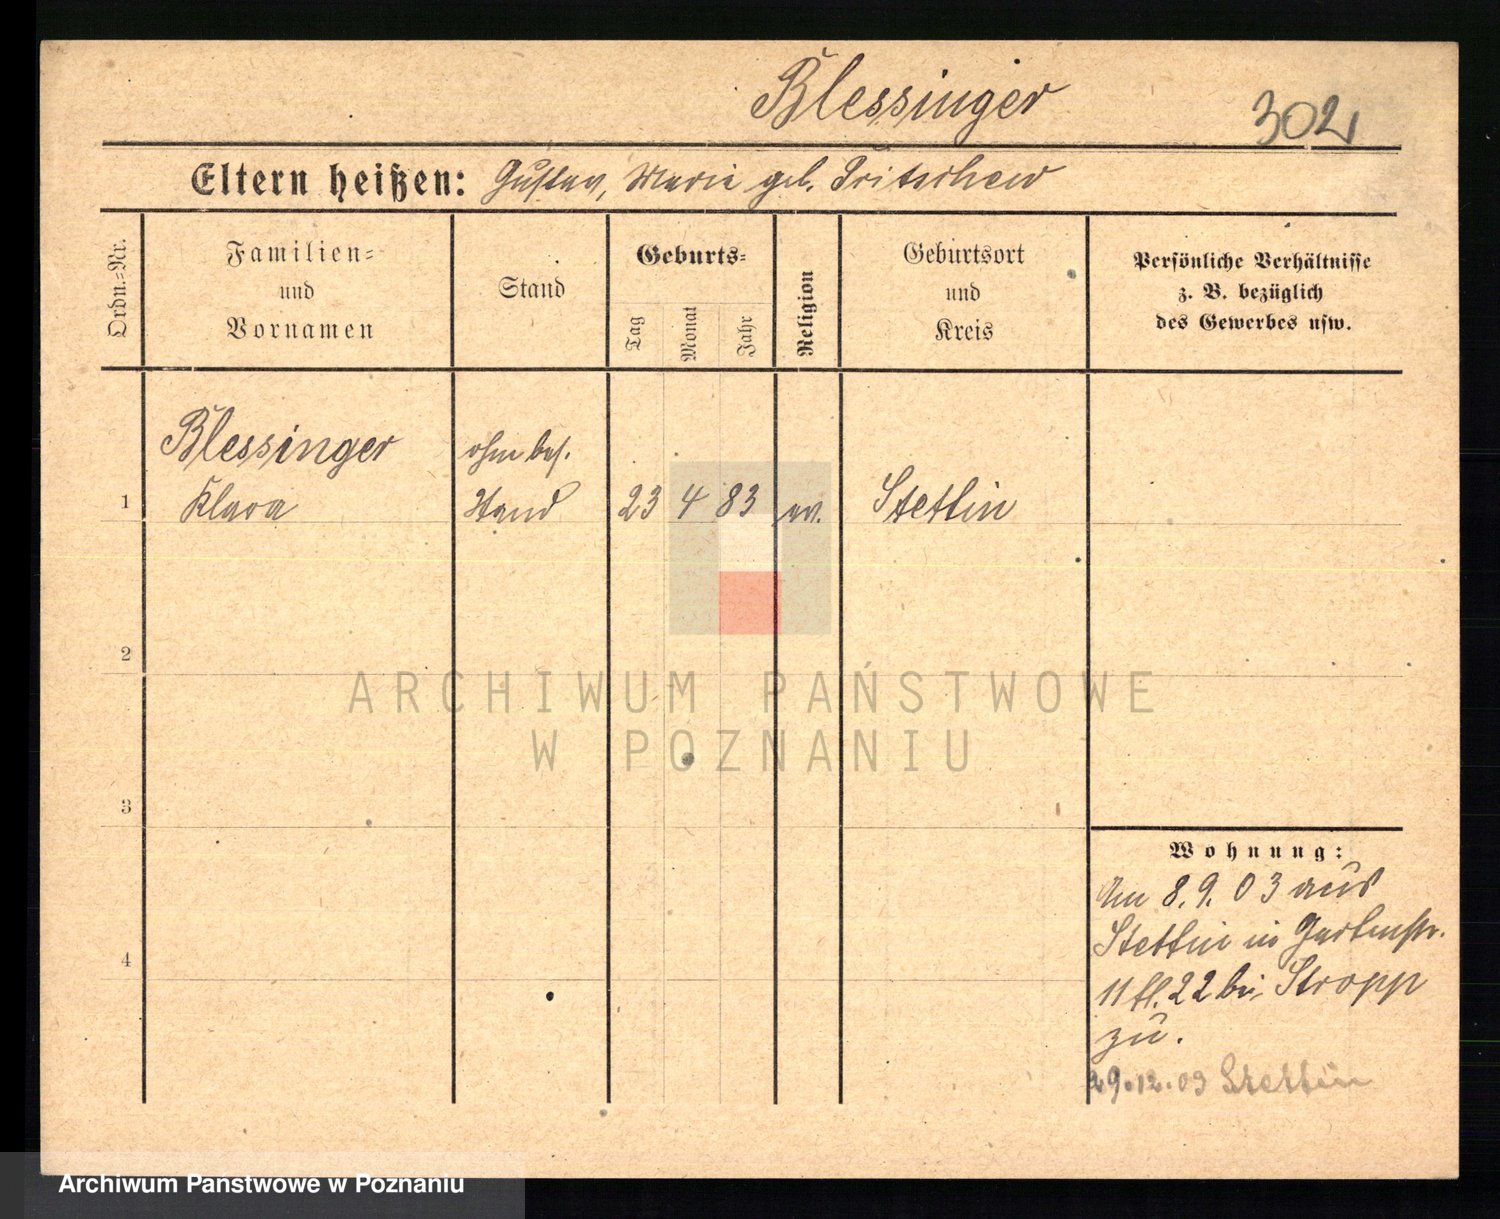 Blessinger
302
Eltern heißen: Gustav, Marie geb.
Ordn.=Nr.
Familien=
und
Vornamen
Stand
Geburts=
Tag
Monat
Jahr
Religion
Geburtsort
und
Kreis
Persönliche Verhältnisse
z. B. bezüglich
des Gewerbes usw.
Blessinger
ohne bes.
1 Klara Stand 23 4 83 ev. Stettin
2
ARCHIWUM PAŃSTWOWE
W POZNANIU
3
Wohnung:
Am 8.9.03 aus
Stettin in Gartenstr.
4
11 22 bei Stropp
zu.
29.12.03 Stettin
Archiwum Państwowe w Poznaniu